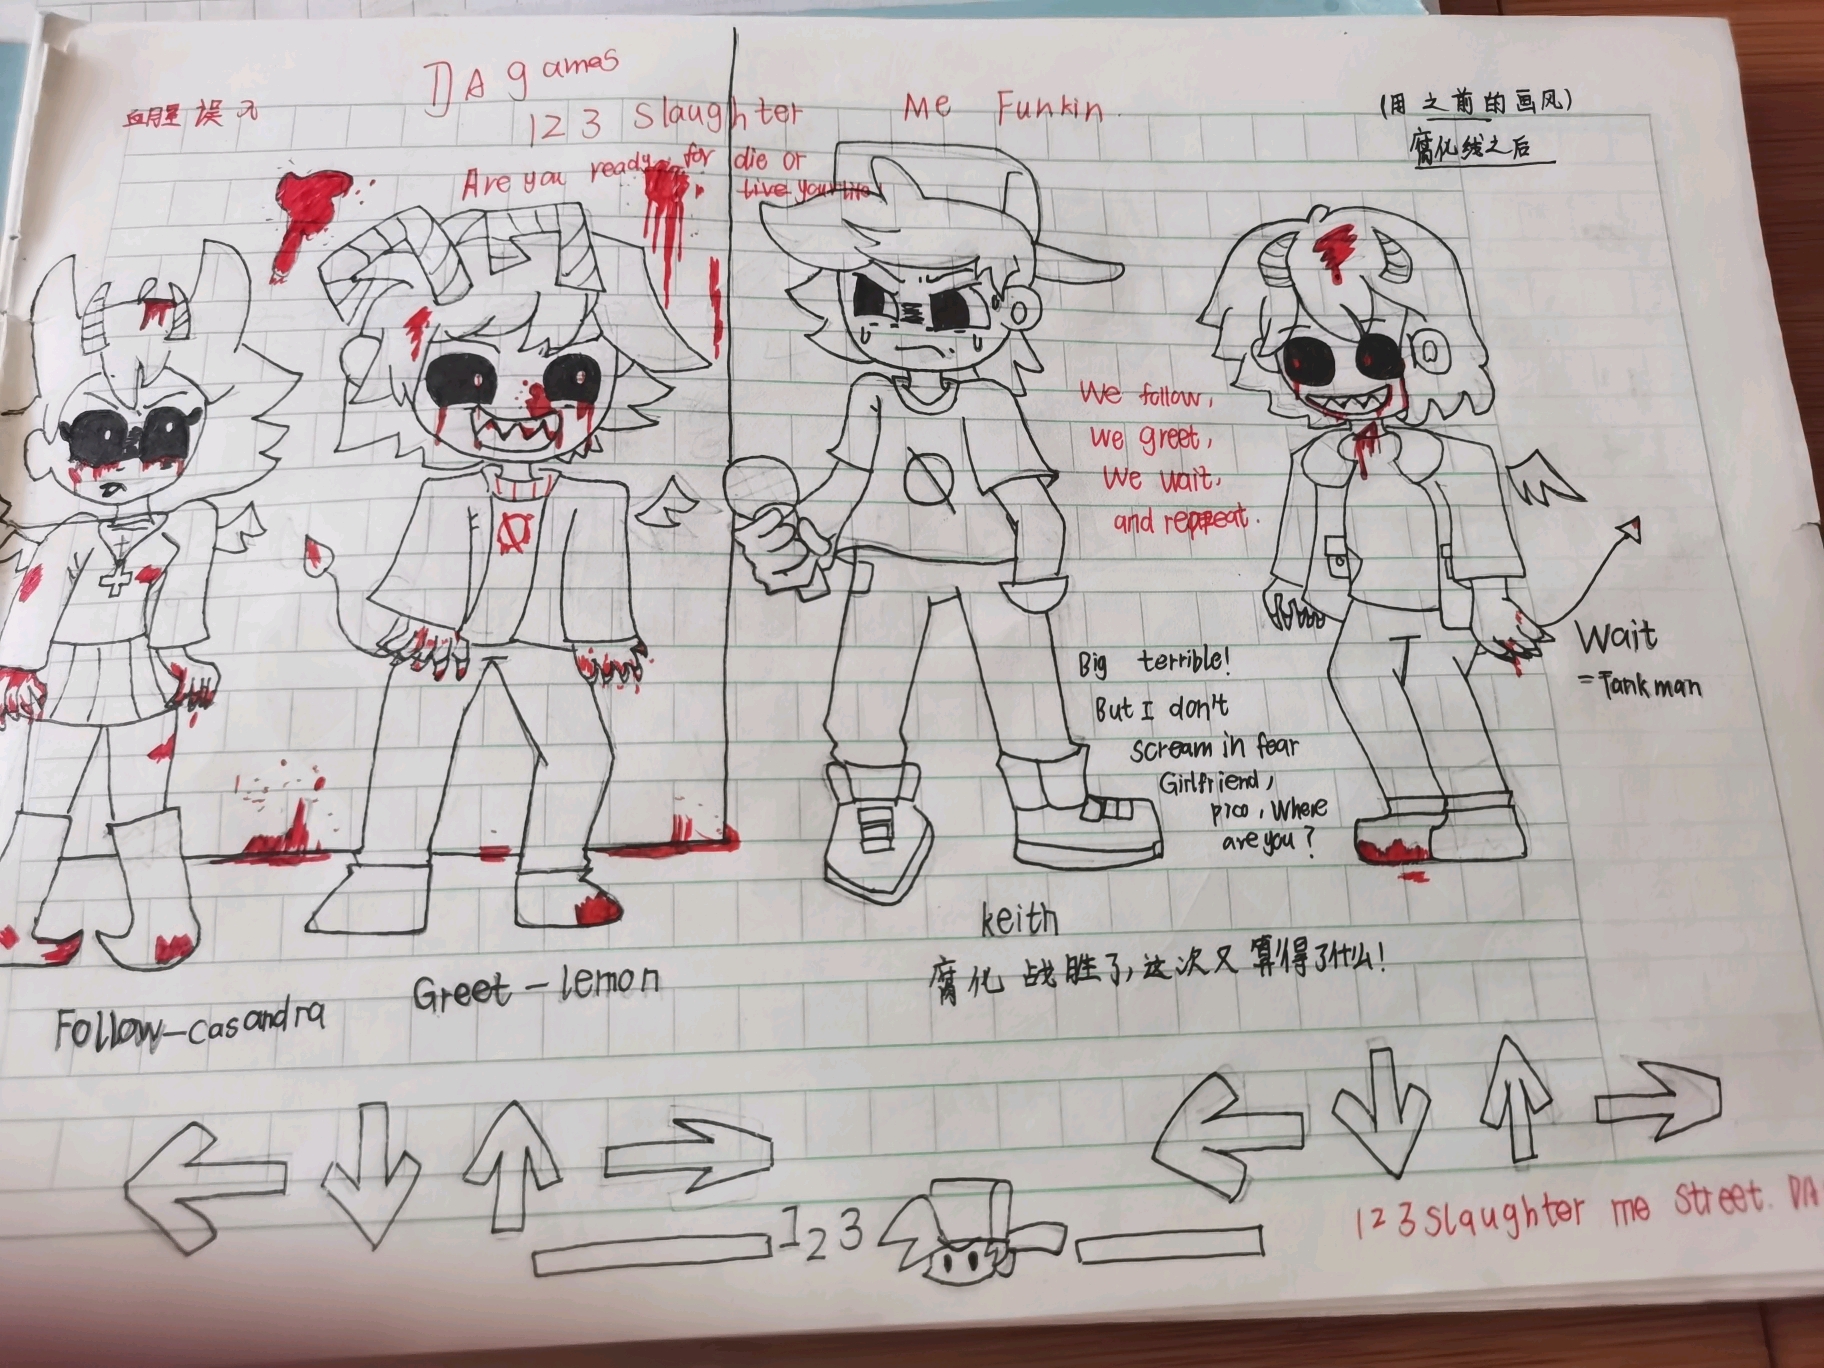 血腥误入
DA games
123 Slaughter Me Funkin.
Are you ready for die or
Live your life
(用之前的画风)
腐化线之后
We follow,
we greet,
We wait,
and reppeat.
Wait
=Tankman
Big terrible!
But I don't
scream in fear
Girlfriend,
pico, Where
are you?
keith
腐化战胜了,这次又算得了什么!
Greet-lemon
Follow-casandra
123
123 slaughter me street. DA